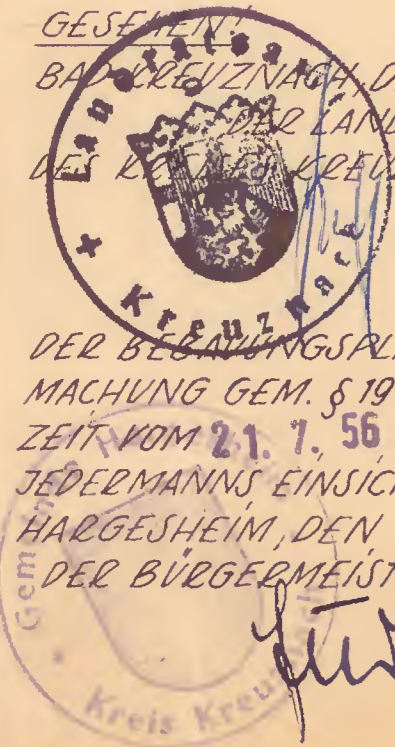 GESEHEN!
BAD KREUZNACH, D
DER LAND
DES KREISES KREUZ
Landratsamt
Kreuznach
DER BEBAUUNGSPL
MACHUNG GEM. § 19
ZEIT VOM 21. 7. 56
JEDERMANNS EINSIC
HARGESHEIM, DEN
DER BÜRGERMEIST
Gemeinde Hargesheim
Kreis Kreuznach